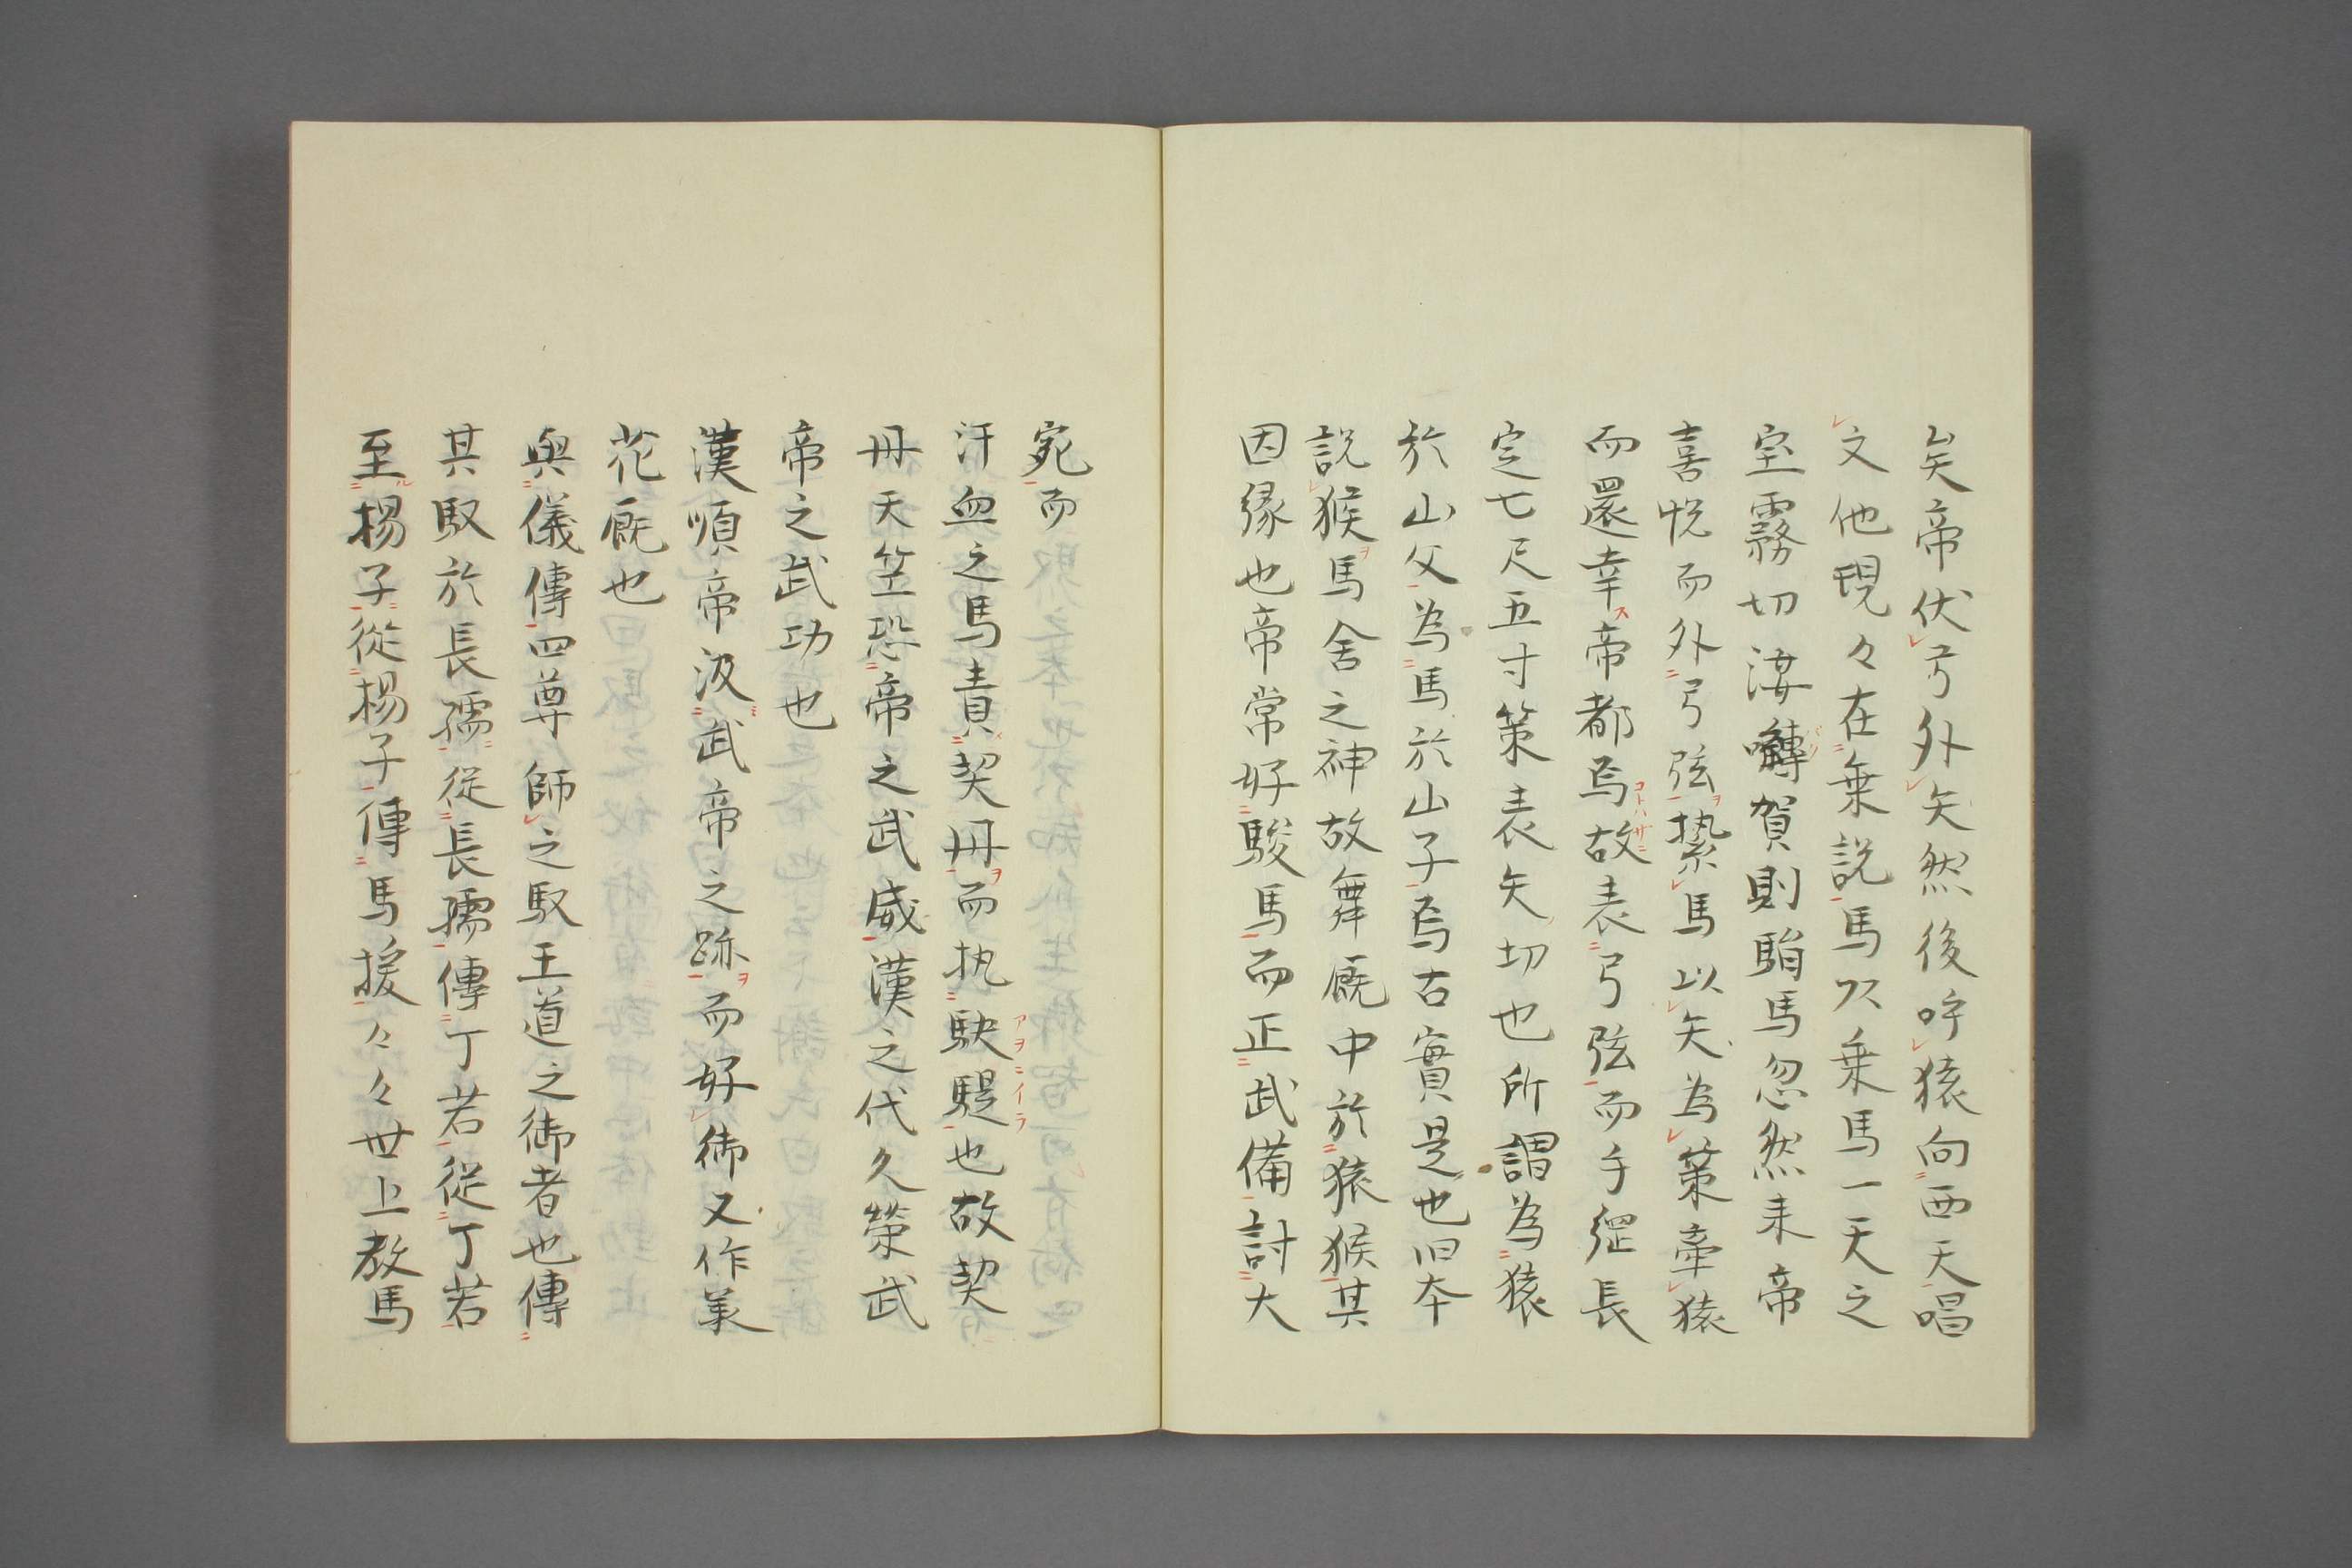 矣帝伏弓外矢然後呼猿向西天唱
文他現々在乗説馬又乗馬一天之
室霧切洳囀賀則駘馬忽然来帝
喜悦而外弓弦縶馬以矢為策牽猿
而還幸帝都焉故表弓弦而手綱長
定七尺五寸策表矢切也所謂為猿
於山父為馬於山子焉古實是也旧本
説猴馬舍之神故舞厩中於猿猴其
因縁也帝常好駿馬而正武備討大
宛而
汗血之馬責契丹而执駃騠也故契
丹天笠恐帝之武威漢之代久榮武
帝之武功也
漢順帝汲武帝之跡而好御又作美
花厩也
與儀傳四尊師之馭王道之御者也傳
其馭於長孺従長孺傳丁若従丁若
至楊子從楊子傳馬援々々世上教馬